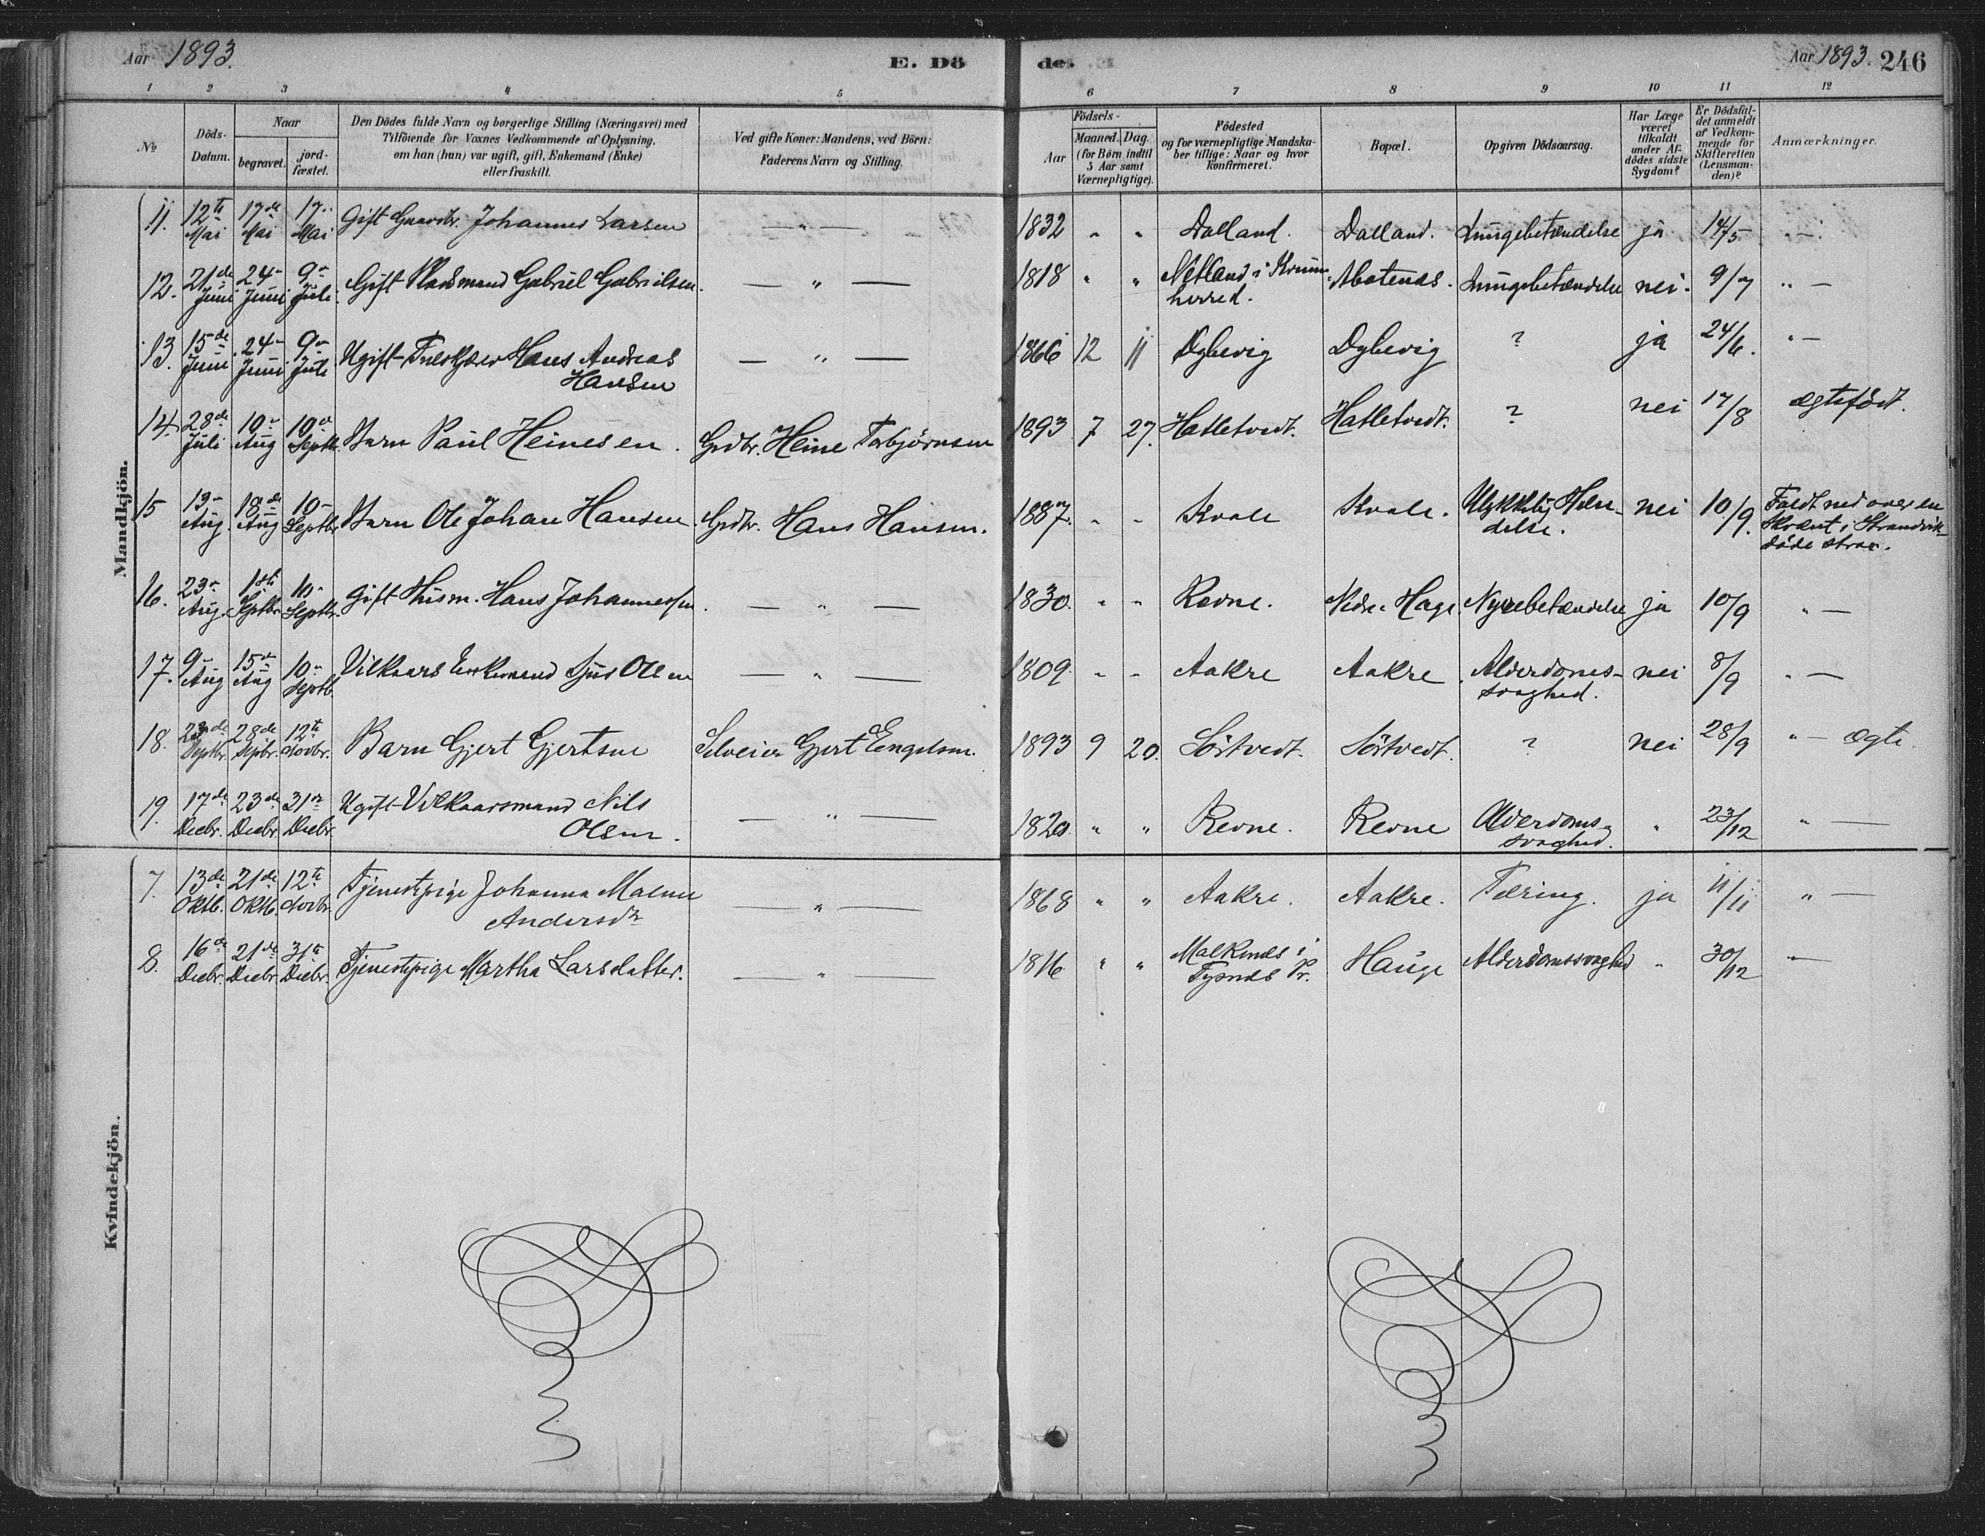 Aar 1893.
E. Dö
de.
Aar 1893. 246
1 2 3 4 5 6 7 8 9 10 11 12
№
Döds-
Datum.
Naar
begravet.
jord-
fæstet.
Den Dödes fulde Navn og borgerlige Stilling (Næringsvei) med
Tilföiende for Voxnes Vedkommende af Oplysning,
om han (hun) var ugift, gift, Enkemand (Enke)
eller fraskilt.
Ved gifte Koner: Mandens, ved Börn:
Faderens Navn og Stilling.
Födsels-
Aar
Maaned. Dag.
(for Börn indtil
5 Aar samt
Værnepligtige).
Födested
og for værnepligtige Mandska-
ber tillige: Naar og hvor
konfirmeret.
Bopæl.
Opgiven Dödsaarsag.
Har Læge
været
tilkaldt
under Af-
dödes sidste
Sygdom?
Er Dödsfal-
det anmeldt
af Vedkom-
mende for
Skifteretten
(Lensman-
den)?
Anmærkninger.
Mandkjön.
11. 12te Mai 17de Mai 17 Mai Gift Gaardbr. Johannes Larsen — " — 1832 " " Dalland. Dalland. Lungebetændelse ja 14/5 " —
12. 21de Juni 24 Juni 9 Juli Gift Pladsmand Gabriel Gabrielsen. — " — 1818 " " Netland i Kvinn-
herred. Lungebetændelse nei. 9/7 " —
13. 15de Juni 24 Juni 9 Juli Ugift Hans Andreas
Hansen — " — 1866 12 11 Dybevig Dybevig ? ja 24/6. " —
14. 28de Juli 19 Aug 10 Septb. Barn Paul Heinesen. Grdbr. Heine Torbjørnsen 1893 7 27. Hatletvedt. Hatletvedt. ? nei 17/8 ægtefödt.
15 13 Aug. 18de Aug 10 Septbr. Barn Ole Johan Hansen. Grdbr. Hans Hansen. 1887. " " Kvale Kvale. Ulykkelig Hæn-
delse. nei 10/9. Faldt ned over en
Skrænt i Strandvik
döde strax.
16. 23 Aug. 1ste Septbr. 10 Septbr. Gift Husm. Hans Johannessen. — " — 1830. " " Revne. Nedre Hage. Nyrebetændelse ja 10/9 " —
17. 9 Aug 15de Aug 10 Septb. Vilkaars Enkemand Sjur Olsen — " — 1809. " " Aakre Aakre Alderdoms-
svaghed. nei 8/9 " —
18. 23de Septbr. 28de Septbr. 12te Novbr. Barn Gjert Gjertsen Selveier Gjert Engelsen. 1893 9 20. Sörtvedt. Sörtvedt. ? nei 28/9 " — ægte.
19. 17de Decbr. 23de Decbr. 31 Decbr. Ugift Vilkaarsmand Nils
Olsen. — " — 1820. " " Revne. Revne Alderdoms-
svaghed. " 23/12 " —
Kvindekjön.
7. 13de Oktb. 21de Oktb. 12te Novbr. Tjenestepige Johanna Malene
Andersdr — " — 1868 " " Aakre. Aakre. Tæring. ja 11/11 " —
8. 16de Decbr. 21de Decbr. 31te Decbr. Tjenestepige Martha Larsdatter. — " — 1816 " " Malkenes i
Tysnes Pr. Hauge Alderdomssvaghed " 30/12 " —